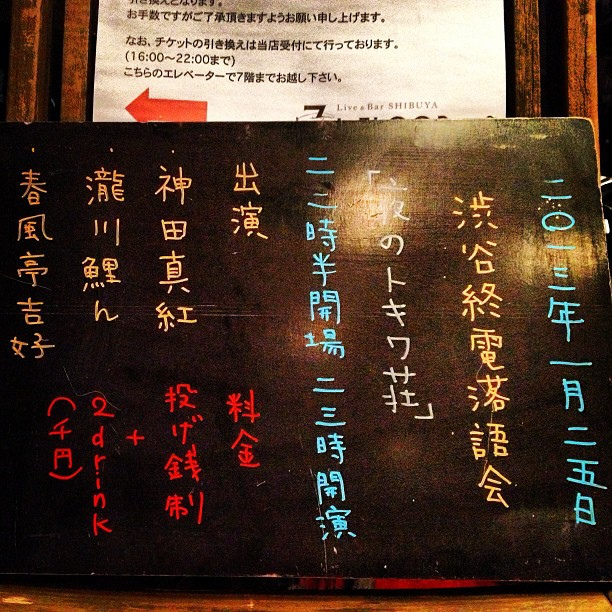 引き換えとなります。
お手数ですがご了承頂きますようお願い申し上げます。
なお、チケットの引き換えは当店受付にて行っております。
(16:00～22:00まで)
こちらのエレベーターで7階までお越し下さい。
Live & Bar SHIBUYA
7
二〇一三年一月二五日
渋谷終電落語会
「夜のトキワ荘」
二二時半開場 二三時開演
出演
・神田真紅
・瀧川鯉ん
・春風亭吉好
料金
投げ銭制
+
2drink
(千円)